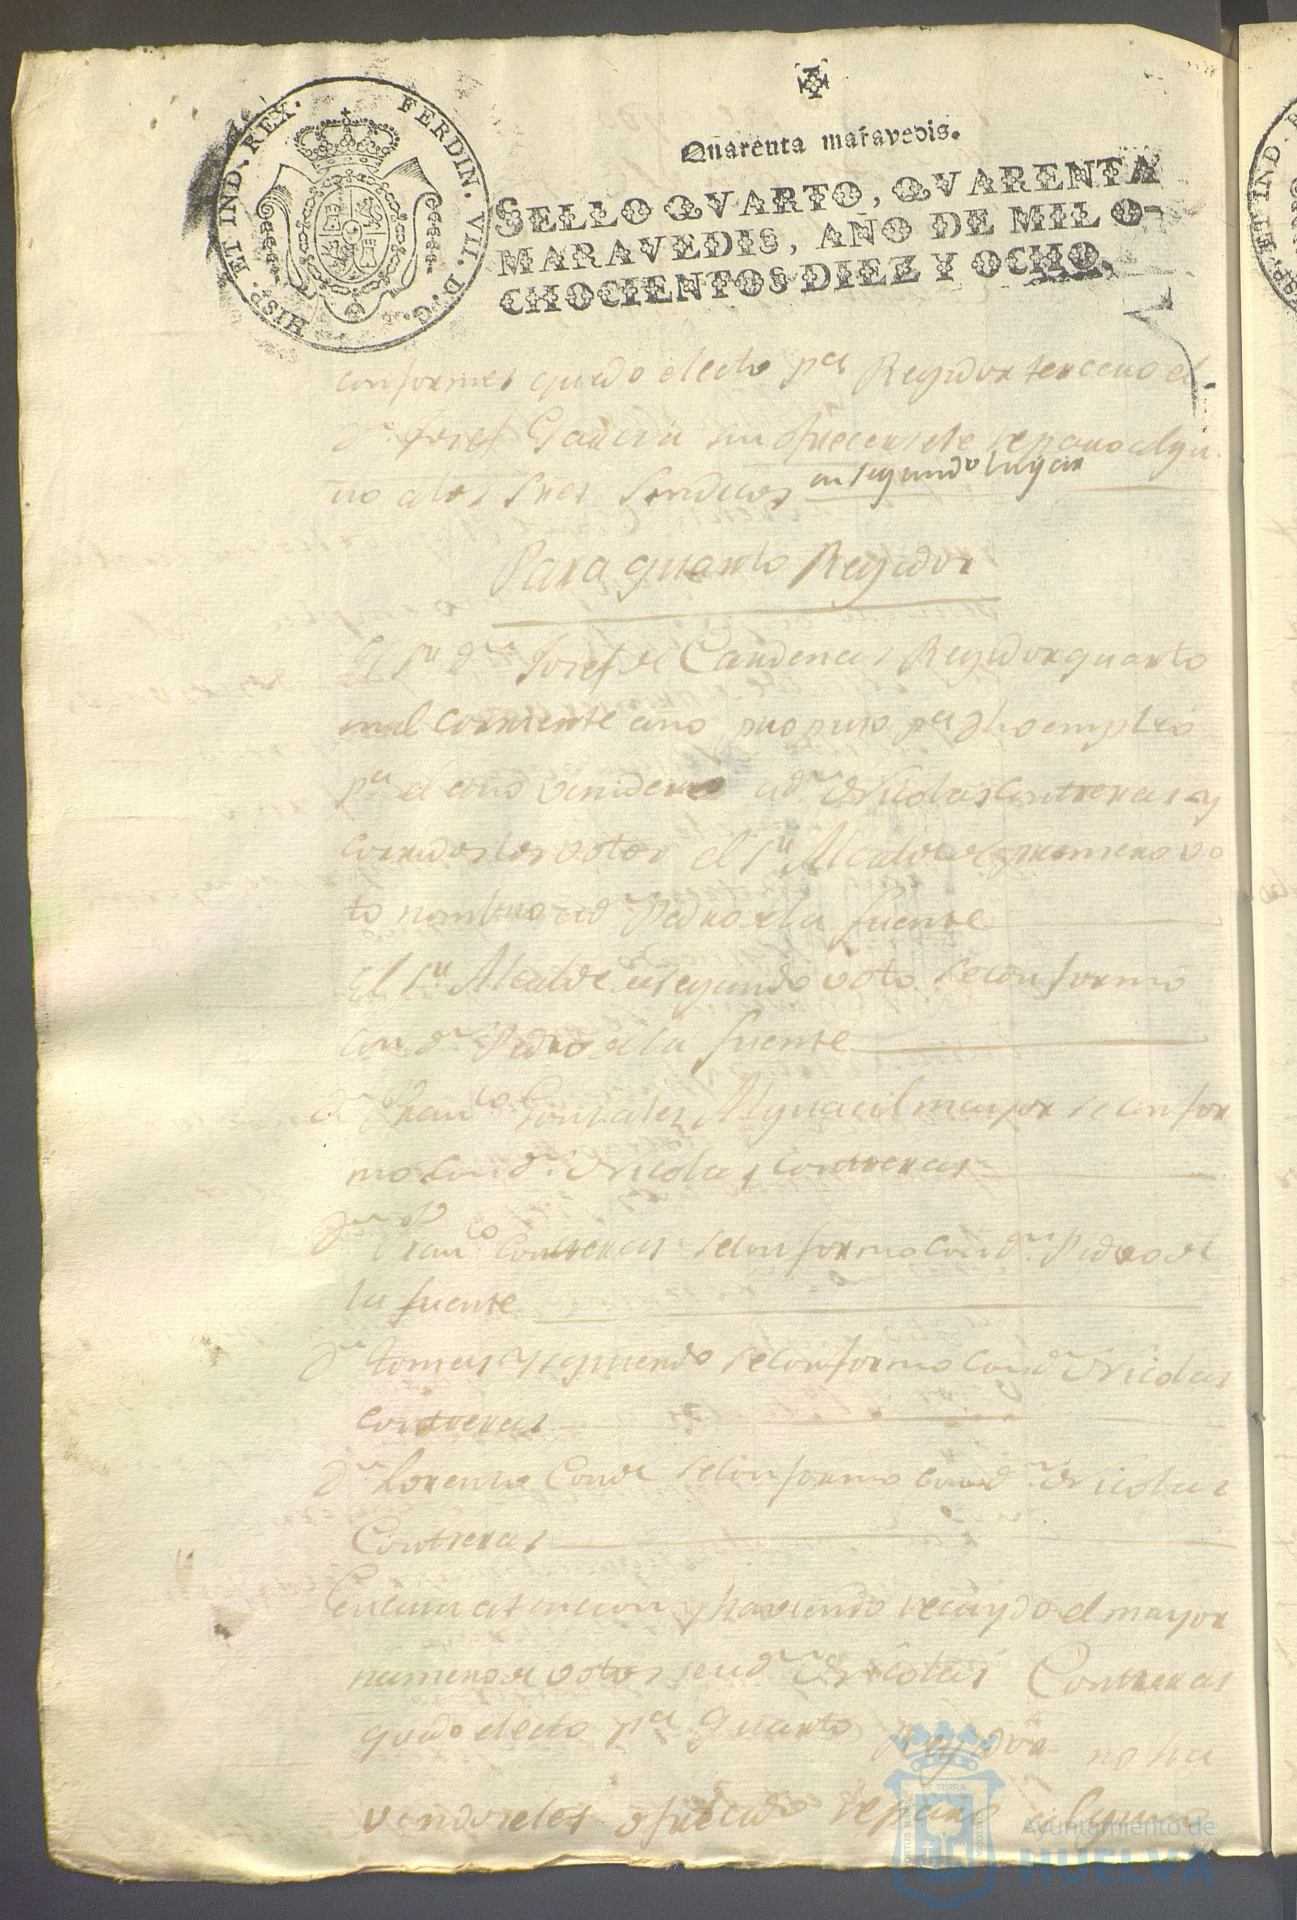 HISP. ET IND. REX. FERDIN. VII. D. G.
Quarenta maravedis.
SELLO QVARTO, QVARENTA
MARAVEDIS, AÑO DE MIL O-
CHOCIENTOS DIEZ Y OCHO.
conformes quedo electo pa Regidor tercero el
dn Josef Garcia sin ofrecersele reparo algu
no a los Sres Sindicos en segundo lugar
Para quarto Regidor
El Sr dn Josef de Cardenas Regidor quarto
en el corriente año propuso pa dho empleo
pa el año venidero a dn Nicolas Contreras y
corridos los votos el Sr Alcalde de primero vo
to nombro a dn Pedro de la fuente
El Sr Alcalde de segundo voto se conformo
con dn Pedro de la fuente
dn Franco Gonzales Alguacil mayor se confor
mo con dn Nicolas Contreras
dn Franco Contreras se conformo con dn Pedro de
la fuente
dn tomas Yzquierdo se conformo con dn Nicolas
contreras
dn Lorenzo Conde se conformo con dn Nicolas
Contreras
En cuia atencion y haviendo recaydo el mayor
numero de votos en dn Nicolas Contreras
quedo electo pa quarto Regidor no ha
viendoseles ofrecido reparo alguno
Ayuntamiento de
HUELVA